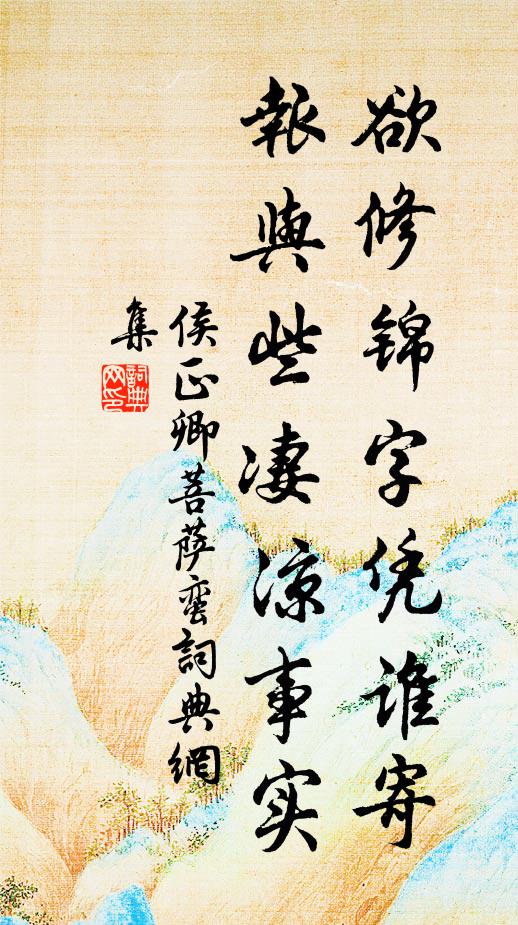 欲修锦字凭谁寄
報與些凄凉事实
侯正卿菩萨蛮詞典網
集
詞典
网印